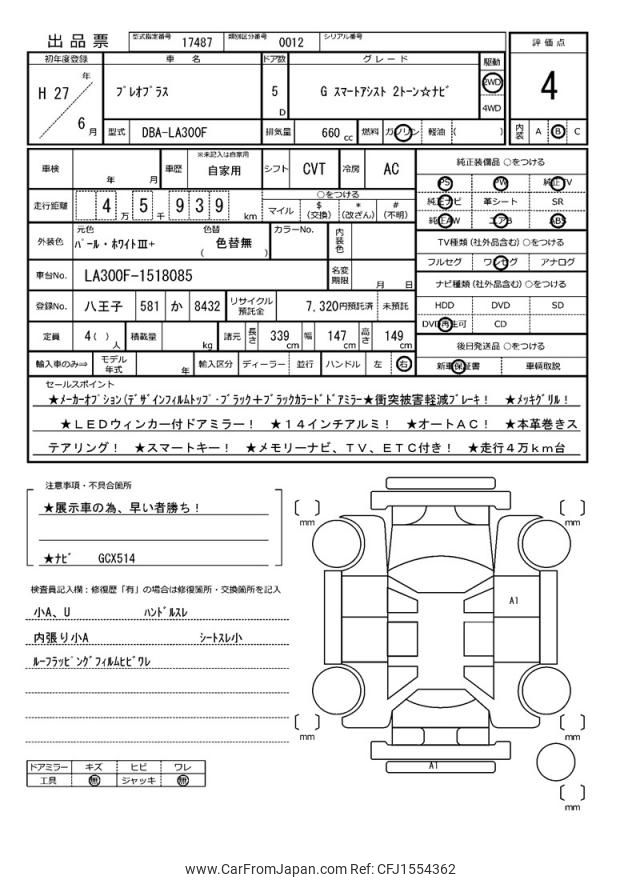 出品票 型式指定番号 17487 類別区分番号 0012 シリアル番号
評価点
初年度登録 車名 ドア数 グレード 駆動
H 27 年 6 月
プレオプラス 5 D G スマートアシスト 2トーン☆ナビ 2WD 4WD
4
型式 DBA-LA300F 排気量 660 cc 燃料 ガソリン 軽油 ( )
内装 A B C
車検 年 月 車歴 ※未記入は自家用 自家用 シフト CVT 冷房 AC
純正装備品 ○をつける
PS PW 純正TV
純正ナビ 革シート SR
純正AW エアB ABS
走行距離 4 万 5 千 9 3 9 km
○をつける
マイル $ (交換) * (改ざん) # (不明)
外装色 元色 パール・ホワイトⅢ+ 色替 ( 色替無 ) カラーNo. 内装色
TV種類(社外品含む)○をつける
フルセグ ワンセグ アナログ
車台No. LA300F-1518085 名変期限 月 日
ナビ種類(社外品含む)○をつける
HDD DVD SD
DVD再生可 CD
登録No. 八王子 581 か 8432 リサイクル預託金 7,320円預託済 未預託
定員 4( )人 積載量 kg 諸元 長さ 339 cm 幅 147 cm 高さ 149 cm
後日発送品 ○をつける
新車保証書 車輌取説
輸入車のみ⇒ モデル年式 年 輸入区分 ディーラー 並行 ハンドル 左 右
セールスポイント
★メーカーオプション(デザインフィルムトップ・ブラック+ブラックカラードドアミラー★衝突被害軽減ブレーキ! ★メッキグリル!
★LEDウィンカー付ドアミラー! ★14インチアルミ! ★オートAC! ★本革巻きス
テアリング! ★スマートキー! ★メモリーナビ、TV、ETC付き! ★走行4万km台
注意事項・不具合箇所
★展示車の為、早い者勝ち!
★ナビ GCX514
検査員記入欄:修復歴「有」の場合は修復箇所・交換箇所を記入
小A、U ハンドルスレ
内張り小A シートスレ小
ルーフラッピングフィルムヒビワレ
ドアミラー キズ ヒビ ワレ
工具 無 ジャッキ 無
mm
mm
A1
mm
mm
A1
mm
www.CarFromJapan.com Ref: CFJ1554362